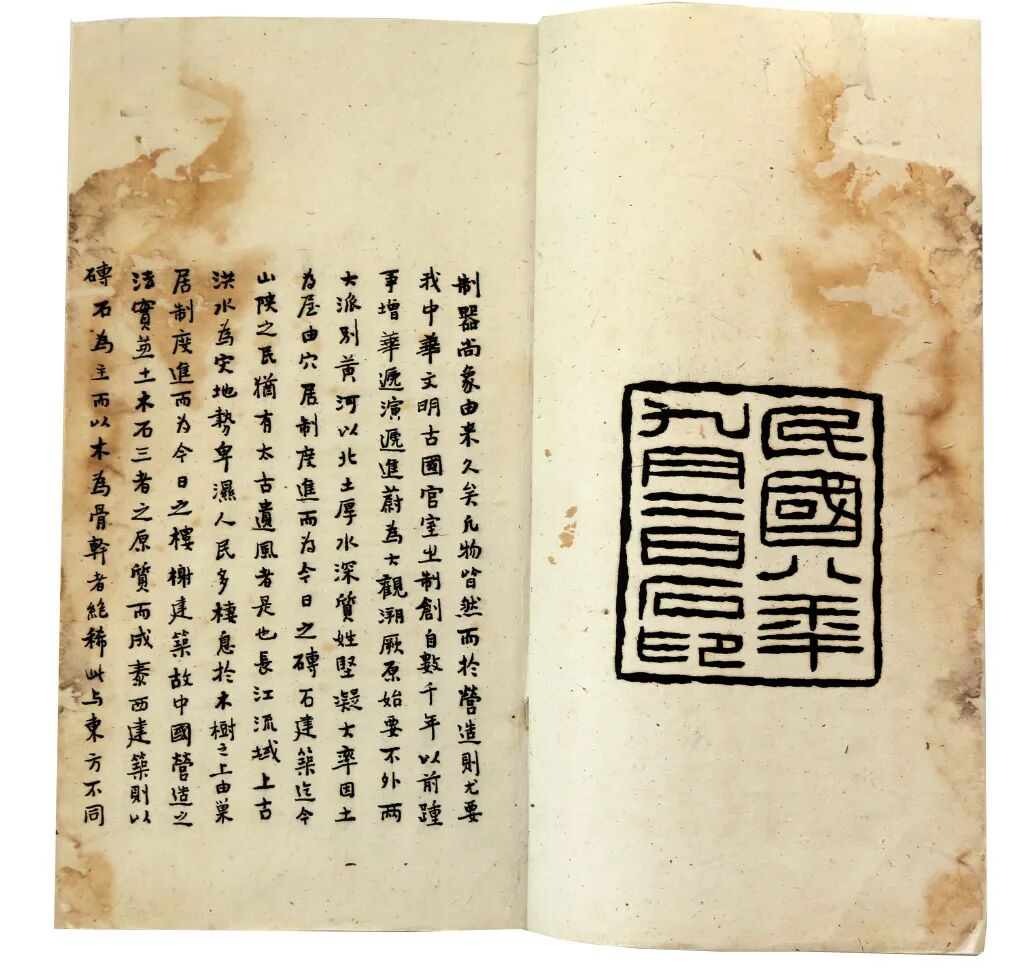 民國八年
九月三日石印
制器尚象由来久矣凡物皆然而於營造則尤要
我中華文明古國官室之制創自數千年以前踵
事增華遞演遞進蔚為大觀溯厥原始要不外兩
大派別黄河以北土厚水深質姓堅凝大率因土
為屋由穴居制度進而為今日之磚石建築迄今
山陝之民猶有太古遺風者是也長江流域上古
洪水為灾地勢卑濕人民多棲息於木樹之上由巢
居制度進而為今日之樓榭建築故中國營造之
法實並土木石三者之原質而成泰西建築則以
磚石為主而以木為骨幹者絶稀此与東方不同